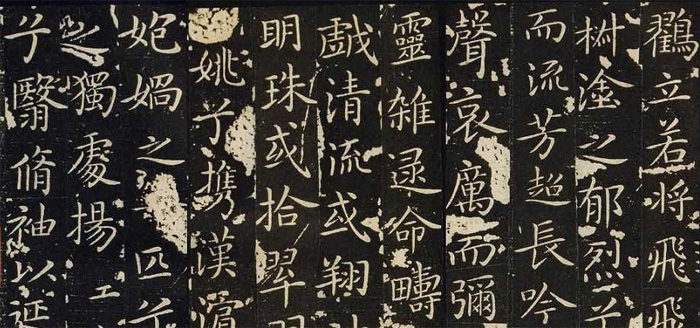 鸖立若將飛
椒塗之郁烈兮
而流芳超長吟
聲哀厲而彌
靈雜遝命疇
戲清流或翔
明珠或拾翠
姚兮攜漢濱
媧之匹兮
之獨處揚
兮翳脩袖以延